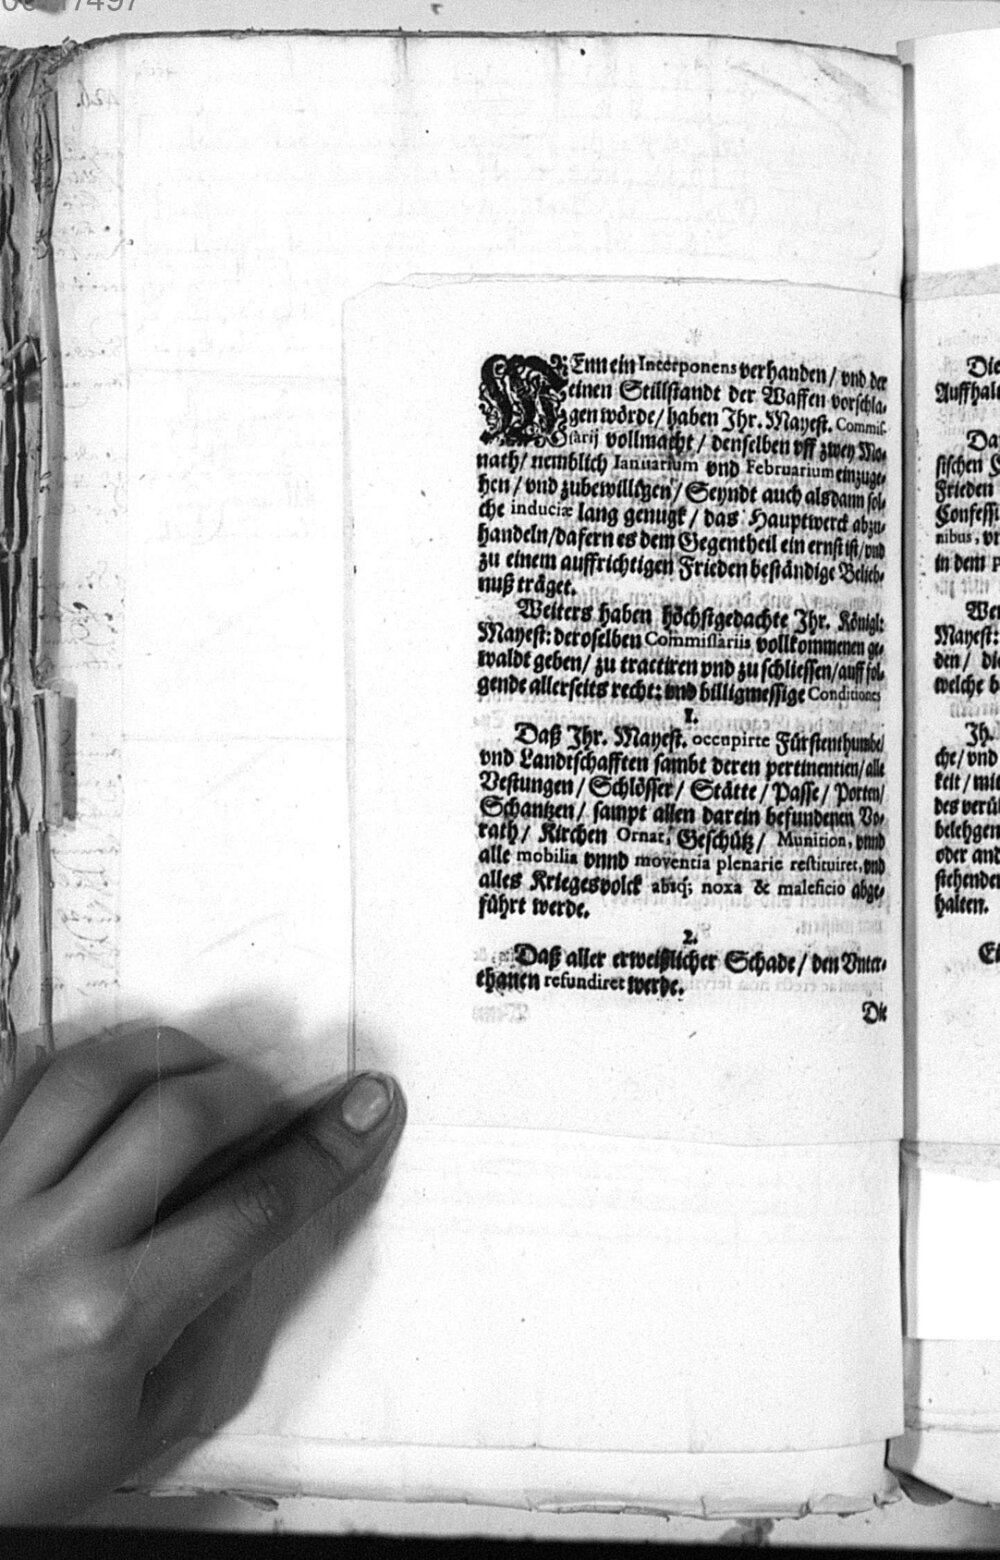 WEnn ein Interponens verhanden / vnd der
einen Stillstandt der Waffen vorschla-
gen wörde / haben Ihr. Mayest. Commis-
sarij vollmacht / denselben vff zwey Mo-
nath / nemblich Ianuarium vnd Februarium einzuge-
hen / vnd zubewilligen / Seyndt auch alsdann sol-
che induciæ lang genugk / das Hauptwerck abzu-
handeln / dafern es dem Gegentheil ein ernst ist / vnd
zu einem auffrichtigen Frieden beständige Belieb-
nuß träget.
Weiters haben höchstgedachte Ihr. Königl:
Mayest: deroselben Commissariis vollkommenen ge-
waldt geben / zu tractiren vnd zu schliessen / auff fol-
gende allerseits recht: vnd billigmessige Conditiones
1.
Daß Ihr. Mayest. occupirte Fürstenthumbe /
vnd Landtschafften sambt deren pertinentien / alle
Vestungen / Schlösser / Stätte / Passe / Porten /
Schantzen / sampt allen darein befundenen Vo-
rath / Kirchen Ornat, Geschütz / Munition, vnnd
alle mobilia vnnd moventia plenarie restituiret, vnd
alles Kriegesvolck absq; noxa & maleficio abge-
führt werde.
2.
Daß aller erweißlicher Schade / den Vnter-
thanen refundiret werde.
Die
Die
Auffhal
Da
sischen
Frieden
Confessi
nibus, vn
in dem P
Wei
Mayest:
den / die
welche b
Ih.
che / vnd
keit / mit
des verü
belehgen
oder and
stehenden
halten.
Ei